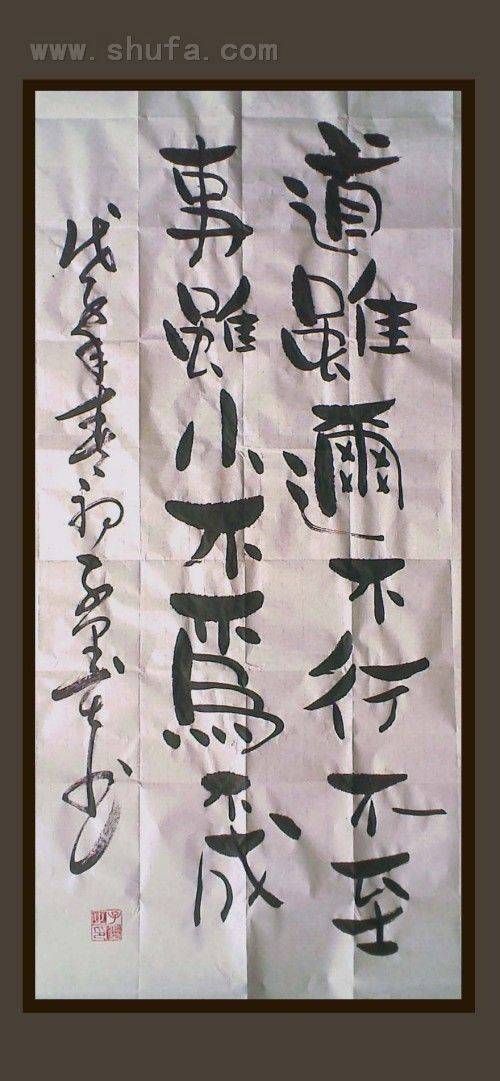 www.shufa.com
道雖邇不行不至
事雖小不爲不成
戊子年春初子墨